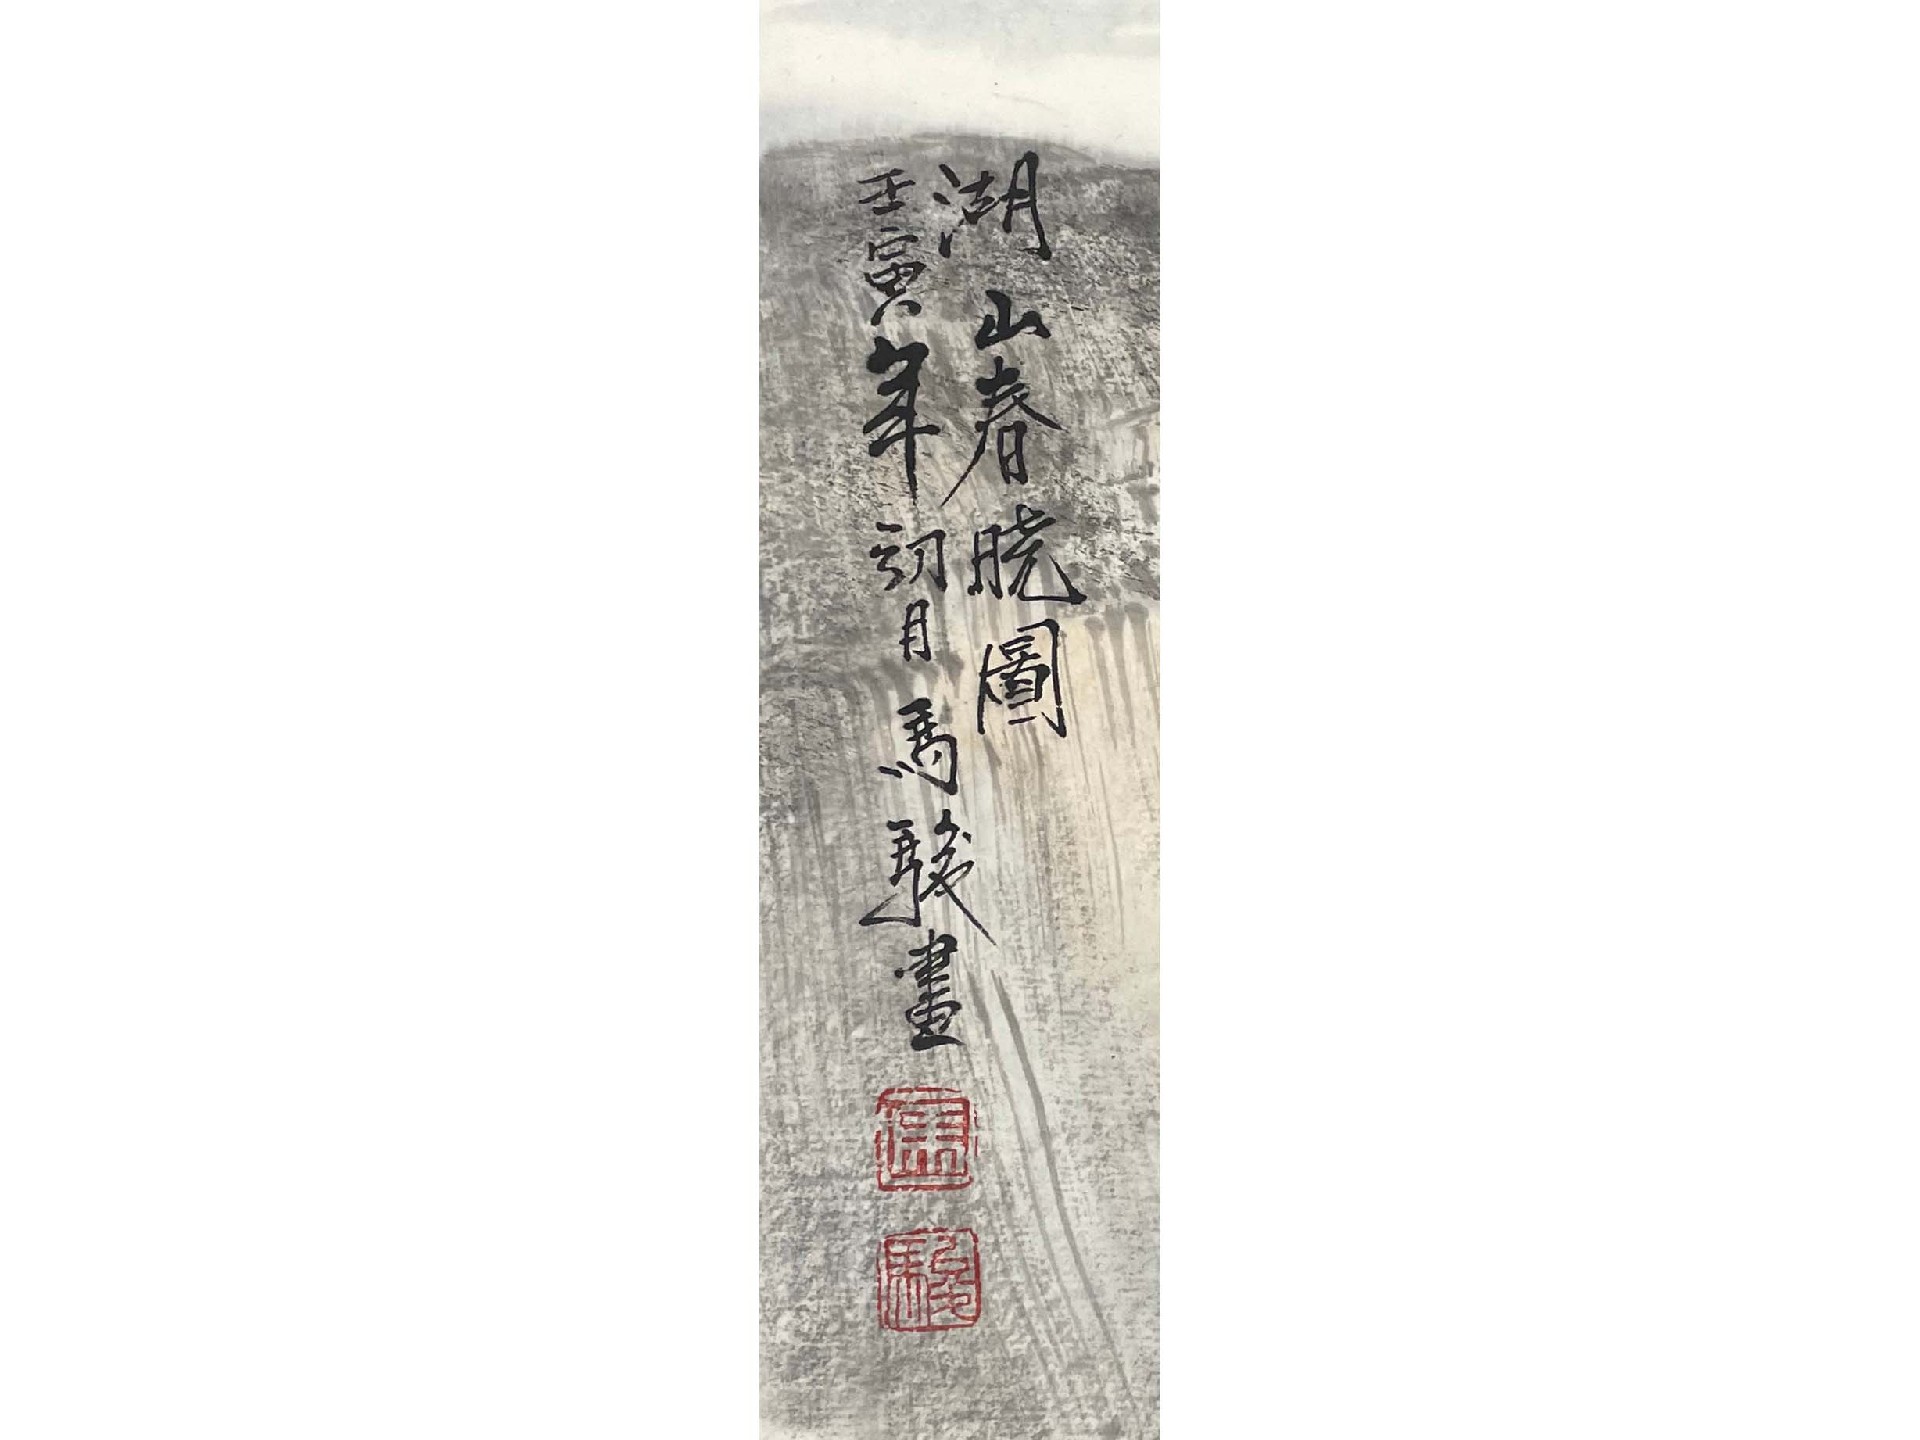 湖山春晓圖
壬寅年初月馬駿畫
馬
駿